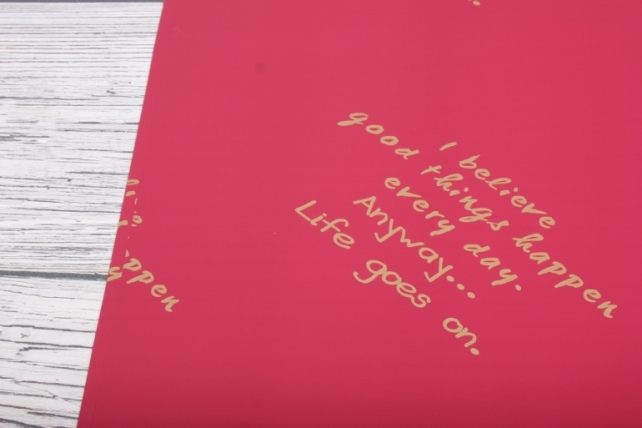 I believe
good things happen
every day.
Anyway...
Life goes on.
ppen